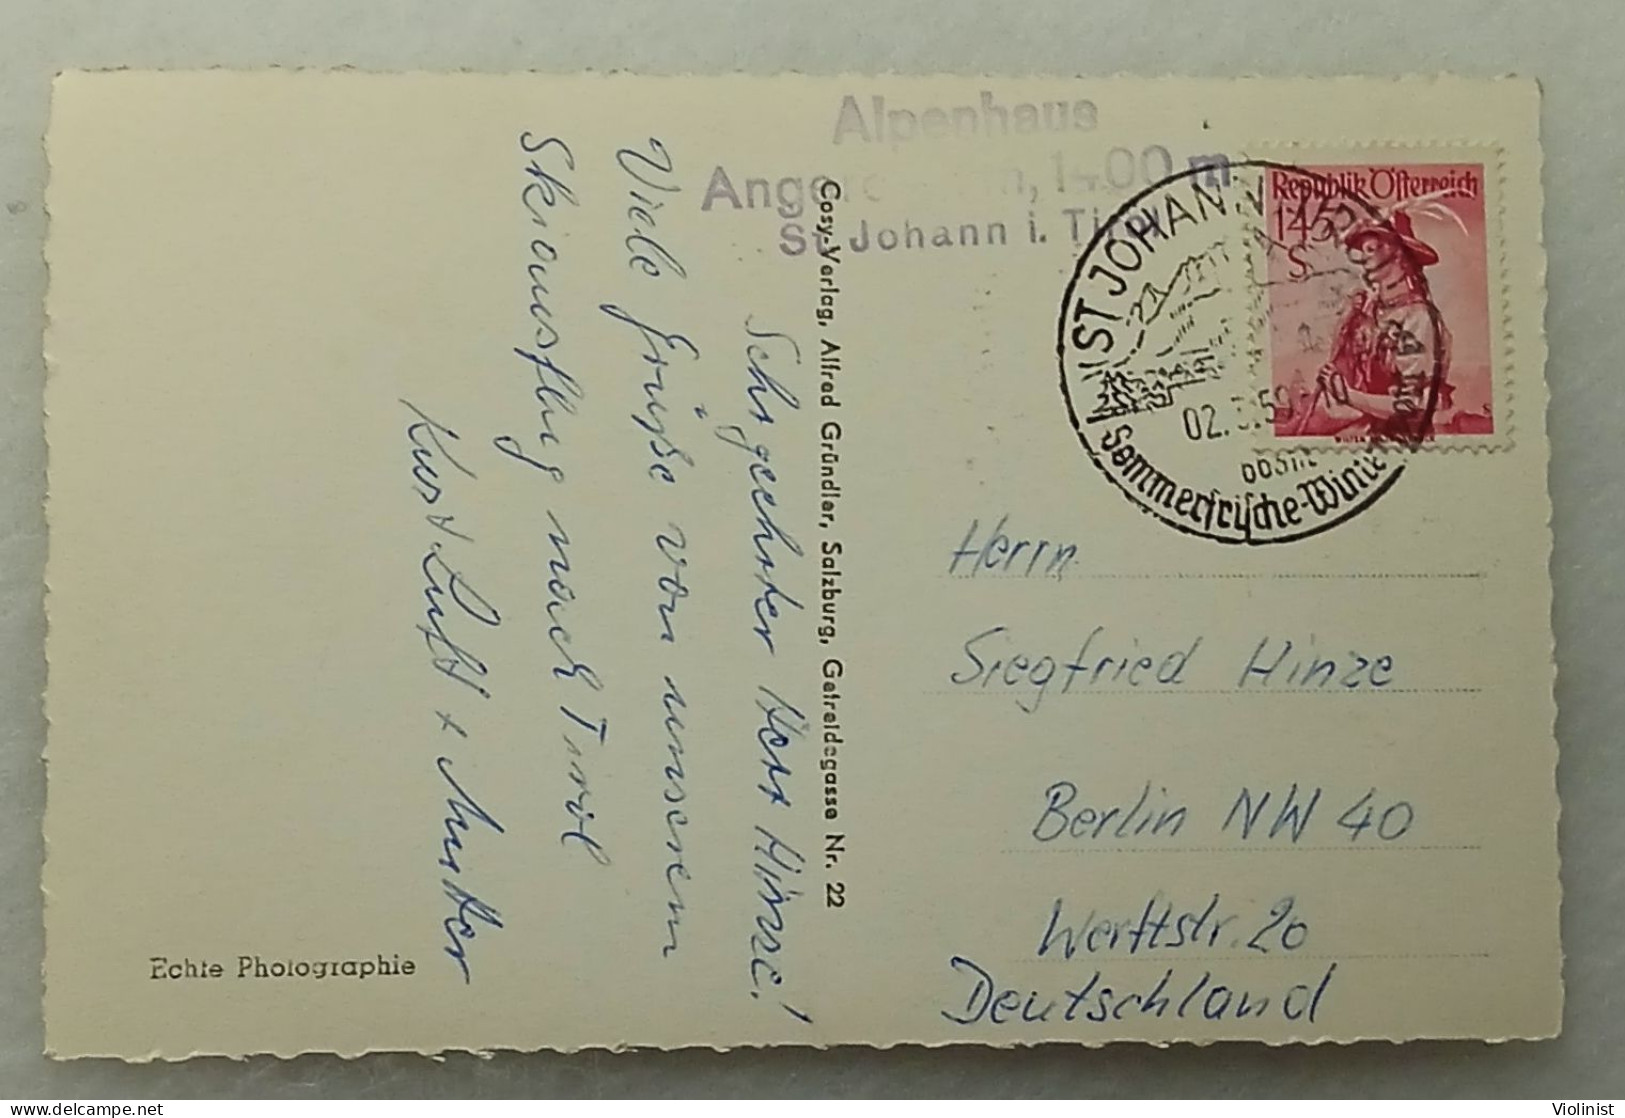 Alpenhaus
1400 m
St. Johann i. Tirol
ST JOHANN
02. 59-10
Sommerfrische-Winter
Republik Österreich
1'45
S
Sehr geehrter Herr Hinze!
Viele Grüße von unserem
Skiausflug nach Tirol
Kurt Luft + Mutter
Cosy-Verlag, Alfred Gründler, Salzburg, Getreidegasse Nr. 22
Echte Photographie
Herrn
Siegfried Hinze
Berlin NW 40
Werftstr. 20
Deutschland
delcampe.net
Violinist